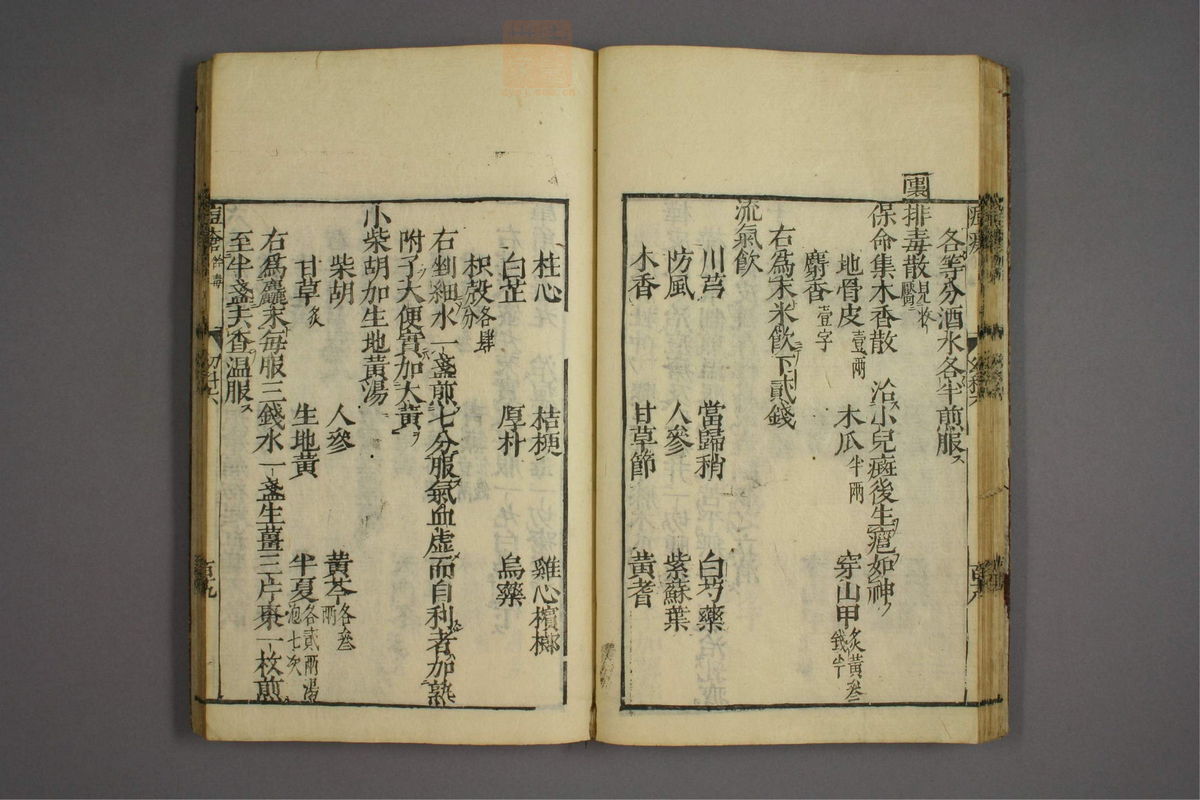 各等分酒水各半煎服
裏排毒散 見膿瘀
保命集木香散 治小兒癍後生瘡如神
地骨皮 壹兩 木瓜 半兩 穿山甲 炙黃叄錢半
麝香 壹字
右為末米飲下貳錢
流氣飲
川芎 當歸稍 白芍藥
防風 人參 紫蘇葉
木香 甘草節 黃耆
桂心 桔梗 雞心檳榔
白芷 厚朴 烏藥
枳殼 各肆分
右剉細水一盞煎七分服氣血虛而自利者加熟
附子大便實加大黃
小柴胡加生地黃湯
柴胡 人參 黃芩 各叄兩
甘草 炙 生地黃 半夏 各貳兩湯泡七次
右為麤末每服三錢水一盞生薑三片棗一枚煎
至半盞去查溫服
痘瘡